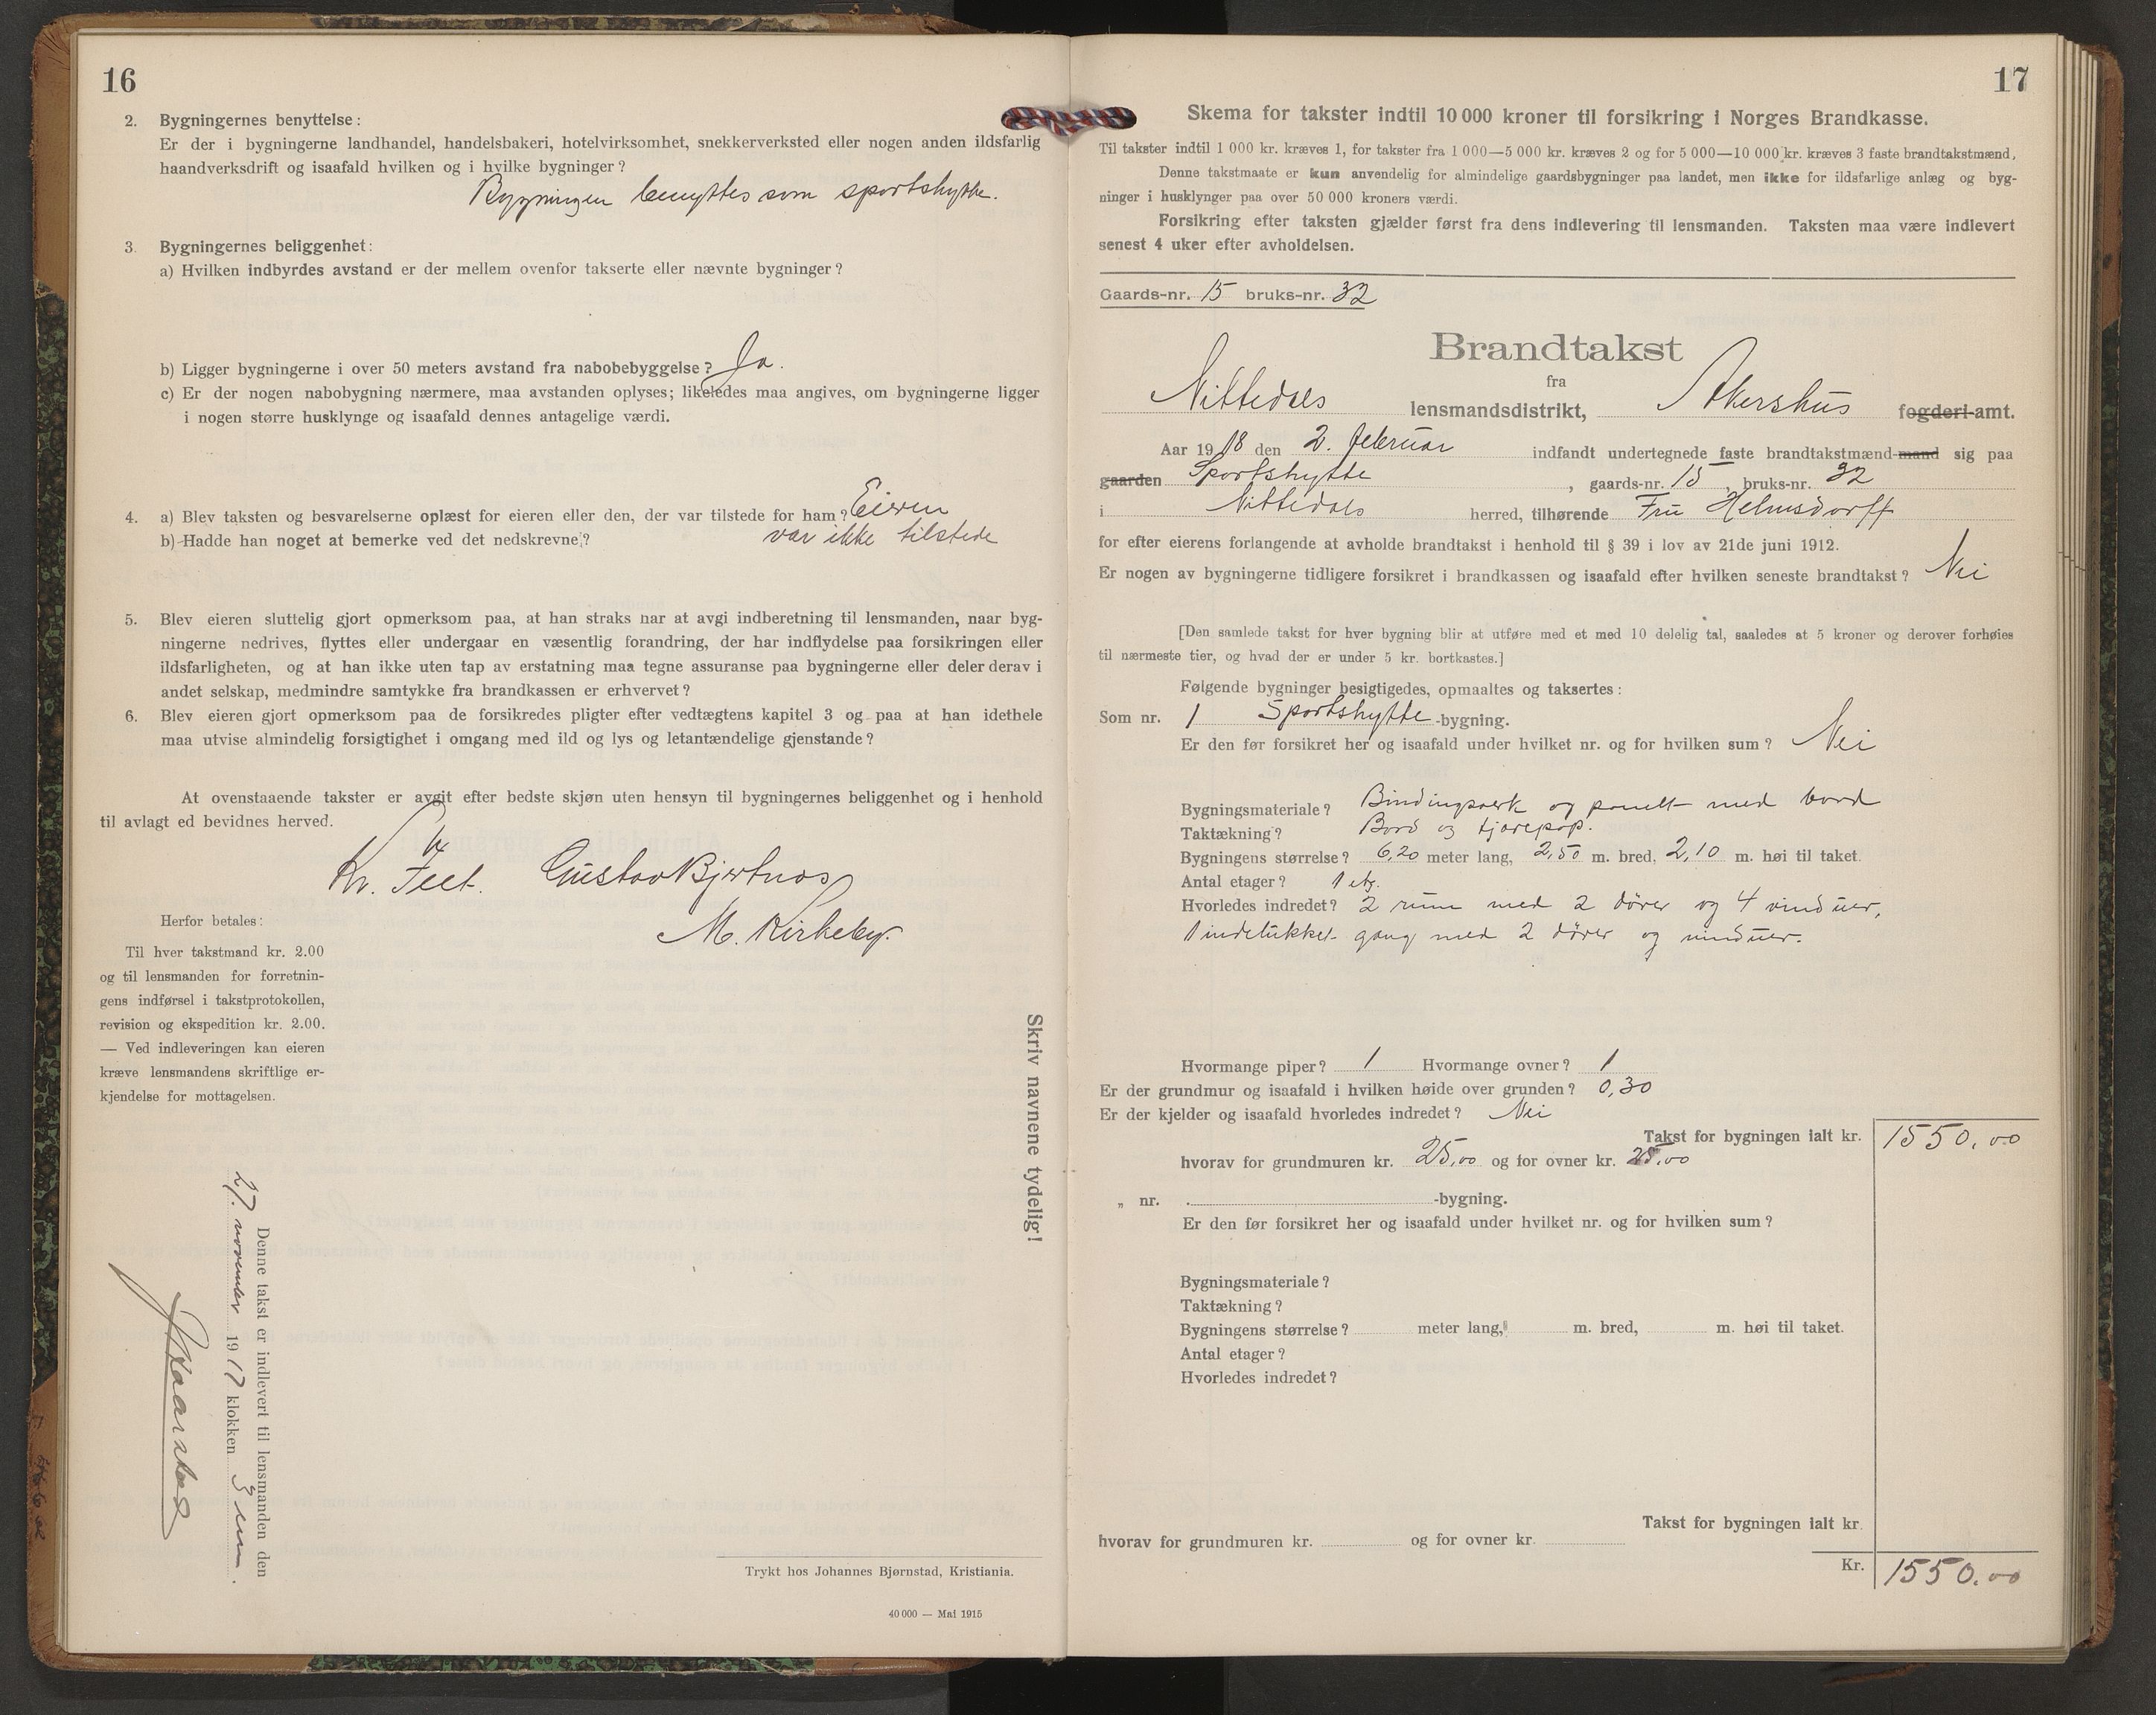 16
2. Bygningernes benyttelse:
Er der i bygningerne landhandel, handelsbakeri, hotelvirksomhet, snekkerverksted eller nogen anden ildsfarlig
haandverksdrift og isaafald hvilken og i hvilke bygninger?
Bygningen benyttes som sportshytte.
3. Bygningernes beliggenhet:
a) Hvilken indbyrdes avstand er der mellem ovenfor takserte eller nævnte bygninger?
b) Ligger bygningerne i over 50 meters avstand fra nabobebyggelse? Ja.
c) Er der nogen nabobygning nærmere, maa avstanden oplyses; likeledes maa angives, om bygningerne ligger
i nogen større husklynge og isaafald dennes antagelige værdi.
4. a) Blev taksten og besvarelserne oplæst for eieren eller den, der var tilstede for ham? Eieren
b) Hadde han noget at bemerke ved det nedskrevne? var ikke tilstede
5. Blev eieren sluttelig gjort opmerksom paa, at han straks har at avgi indberetning til lensmanden, naar byg-
ningerne nedrives, flyttes eller undergaar en væsentlig forandring, der har indflydelse paa forsikringen eller
ildsfarligheten, og at han ikke uten tap av erstatning maa tegne assuranse paa bygningerne eller deler derav i
andet selskap, medmindre samtykke fra brandkassen er erhvervet?
6. Blev eieren gjort opmerksom paa de forsikredes pligter efter vedtægtens kapitel 3 og paa at han idethele
maa utvise almindelig forsigtighet i omgang med ild og lys og letantændelige gjenstande?
At ovenstaaende takster er avgit efter bedste skjøn uten hensyn til bygningernes beliggenhet og i henhold
til avlagt ed bevidnes herved.
Kr. Gustav Bjertnæs
M. Kirkeby.
Herfor betales:
Til hver takstmand kr. 2.00
og til lensmanden for forretnin-
gens indførsel i takstprotokollen,
revision og ekspedition kr. 2.00.
— Ved indleveringen kan eieren
kræve lensmandens skriftlige er-
kjendelse for mottagelsen.
Skriv navnene tydelig!
Denne takst er indlevert til lensmanden den
27. november 1917 klokken 3 em.
Trykt hos Johannes Bjørnstad, Kristiania.
40 000 — Mai 1915
17
Skema for takster indtil 10 000 kroner til forsikring i Norges Brandkasse.
Til takster indtil 1 000 kr. kræves 1, for takster fra 1 000—5 000 kr. kræves 2 og for 5 000—10 000 kr. kræves 3 faste brandtakstmænd,
Denne takstmaate er kun anvendelig for almindelige gaardsbygninger paa landet, men ikke for ildsfarlige anlæg og byg-
ninger i husklynger paa over 50 000 kroners værdi.
Forsikring efter taksten gjælder først fra dens indlevering til lensmanden. Taksten maa være indlevert
senest 4 uker efter avholdelsen.
Gaards-nr. 15 bruks-nr. 32
Brandtakst
fra
Nittedals lensmandsdistrikt, Akershus fogderi-amt.
Aar 1918 den 2. februar indfandt undertegnede faste brandtakstmænd-mand sig paa
gaarden Sportshytte, gaards-nr. 15, bruks-nr. 32
i Nittedals herred, tilhørende Fru Helmsdorff
for efter eierens forlangende at avholde brandtakst i henhold til § 39 i lov av 21de juni 1912.
Er nogen av bygningerne tidligere forsikret i brandkassen og isaafald efter hvilken seneste brandtakst? Nei
[Den samlede takst for hver bygning blir at utføre med et med 10 delelig tal, saaledes at 5 kroner og derover forhøies
til nærmeste tier, og hvad der er under 5 kr. bortkastes.]
Følgende bygninger besigtigedes, opmaaltes og taksertes:
Som nr. 1 Sportshytte-bygning.
Er den før forsikret her og isaafald under hvilket nr. og for hvilken sum? Nei
Bygningsmateriale? Bindingsverk og panelt med bord
Taktækning? Bord og tjærepap.
Bygningens størrelse? 6,20 meter lang, 2,50 m. bred, 2,10 m. høi til taket.
Antal etager? 1 etg.
Hvorledes indredet? 2 rum med 2 dører og 4 vinduer,
1 indelukket gang med 2 dører og vinduer.
Hvormange piper? 1 Hvormange ovner? 1
Er der grundmur og isaafald i hvilken høide over grunden? 0,30
Er der kjelder og isaafald hvorledes indredet? Nei
Takst for bygningen ialt kr. 1550.00
hvorav for grundmuren kr. 25,00 og for ovner kr. 25,00
„ nr. -bygning.
Er den før forsikret her og isaafald under hvilket nr. og for hvilken sum?
Bygningsmateriale?
Taktækning?
Bygningens størrelse? meter lang, m. bred, m. høi til taket.
Antal etager?
Hvorledes indredet?
Takst for bygningen ialt kr.
hvorav for grundmuren kr. og for ovner kr.
Kr. 1550.00